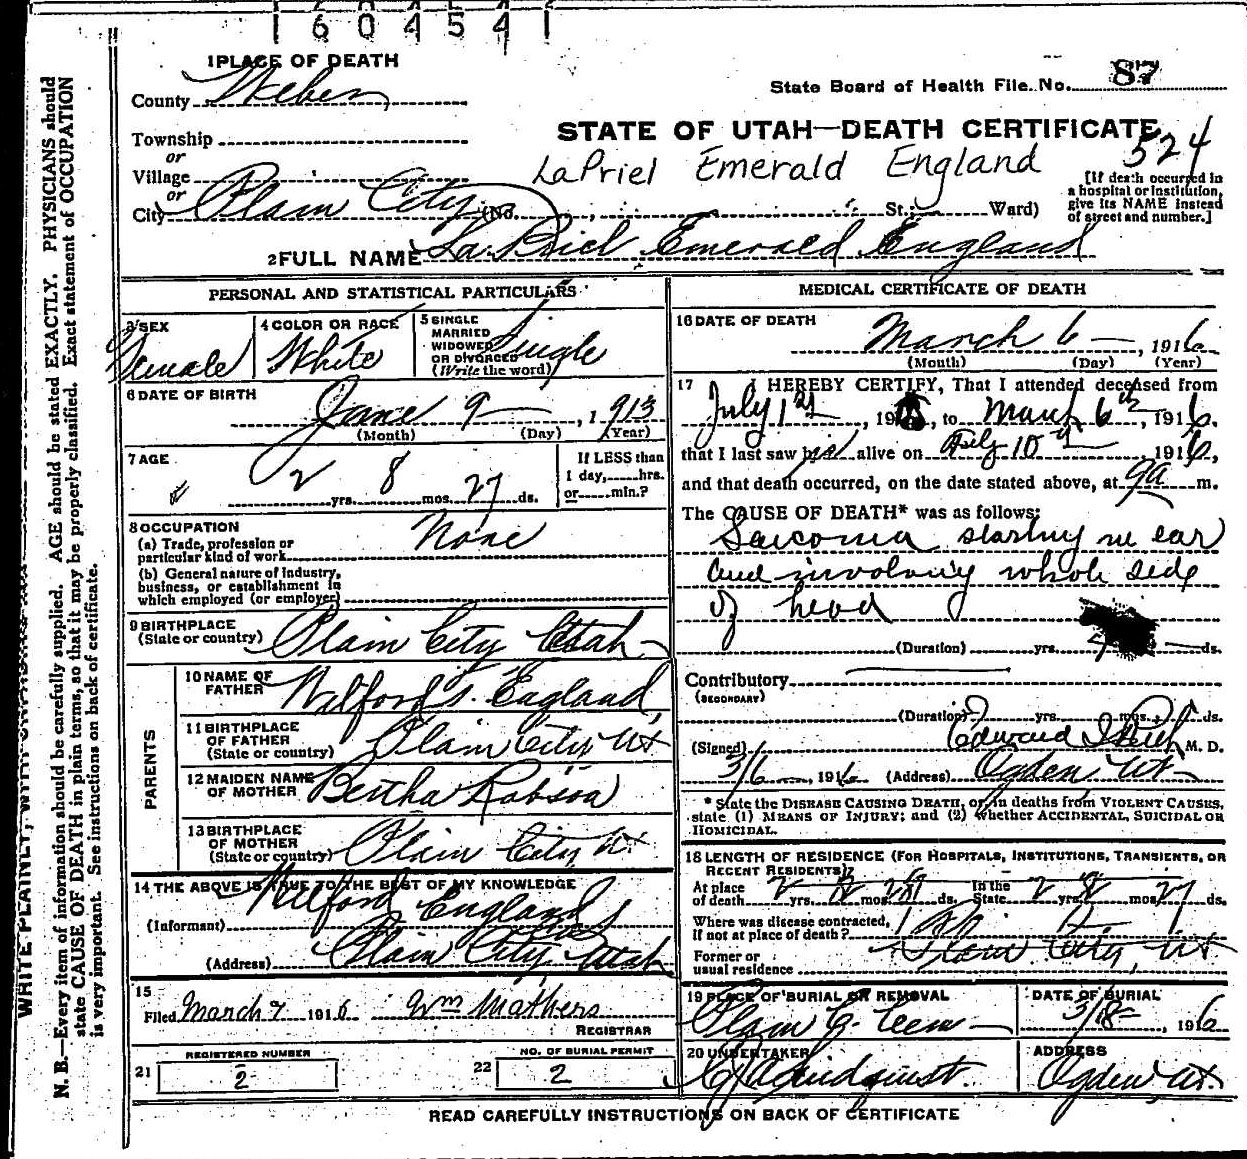 1604541
1 PLACE OF DEATH
County Weber
State Board of Health File No. 87
Township
or
Village
or
City Plain City (No. , St.; Ward)
STATE OF UTAH—DEATH CERTIFICATE
524
LaPriel Emerald England
[If death occurred in
a hospital or institution,
give its NAME instead
of street and number.]
2 FULL NAME La Priel Emerald England
PERSONAL AND STATISTICAL PARTICULARS
3 SEX
Female
4 COLOR OR RACE
White
5 SINGLE
MARRIED
WIDOWED
OR DIVORCED
(Write the word)
Single
6 DATE OF BIRTH
June 9 , 1913
(Month) (Day) (Year)
7 AGE
2 yrs. 8 mos. 27 ds.
If LESS than
1 day, hrs.
or min.?
8 OCCUPATION
(a) Trade, profession or
particular kind of work
None
(b) General nature of industry,
business, or establishment in
which employed (or employer)
9 BIRTHPLACE
(State or country) Plain City Utah
PARENTS
10 NAME OF
FATHER Wilford S. England
11 BIRTHPLACE
OF FATHER
(State or country) Plain City Ut
12 MAIDEN NAME
OF MOTHER Bertha Robson
13 BIRTHPLACE
OF MOTHER
(State or country) Plain City Ut.
14 THE ABOVE IS TRUE TO THE BEST OF MY KNOWLEDGE
(Informant) Wilford England
(Address) Plain City Utah
15
Filed March 7 1916 Wm Mathers
REGISTRAR
21 REGISTERED NUMBER
2
22 NO. OF BURIAL PERMIT
2
MEDICAL CERTIFICATE OF DEATH
16 DATE OF DEATH
March 6 , 1916
(Month) (Day) (Year)
17 I HEREBY CERTIFY, That I attended deceased from
July 1st , 191 , to March 6th , 1916,
that I last saw alive on 10th , 1916,
and that death occurred, on the date stated above, at 9a m.
The CAUSE OF DEATH* was as follows:
Sarcoma starting in ear
and involving whole side
of head
(Duration) yrs. ds.
Contributory
(SECONDARY)
(Duration) yrs. mos. ds.
(Signed) Edward I M. D.
3/6 , 1916 (Address) Ogden Ut
* State the DISEASE CAUSING DEATH, or, in deaths from VIOLENT CAUSES,
state (1) MEANS OF INJURY; and (2) whether ACCIDENTAL, SUICIDAL OR
HOMICIDAL.
18 LENGTH OF RESIDENCE (FOR HOSPITALS, INSTITUTIONS, TRANSIENTS, OR
RECENT RESIDENTS)
At place of death 2 yrs. 8 mos. ds. In the State 2 yrs. 8 mos. 27 ds.
Where was disease contracted,
If not at place of death?
Former or
usual residence Plain City, Ut
19 PLACE OF BURIAL OR REMOVAL
Plain C. Cem
DATE OF BURIAL
3/8 , 1916
20 UNDERTAKER
Lindquist.
ADDRESS
Ogden, Ut.
READ CAREFULLY INSTRUCTIONS ON BACK OF CERTIFICATE
N. B.—Every item of information should be carefully supplied. AGE should be stated EXACTLY. PHYSICIANS should
state CAUSE OF DEATH in plain terms, so that it may be properly classified. Exact statement of OCCUPATION
is very important. See instructions on back of certificate.